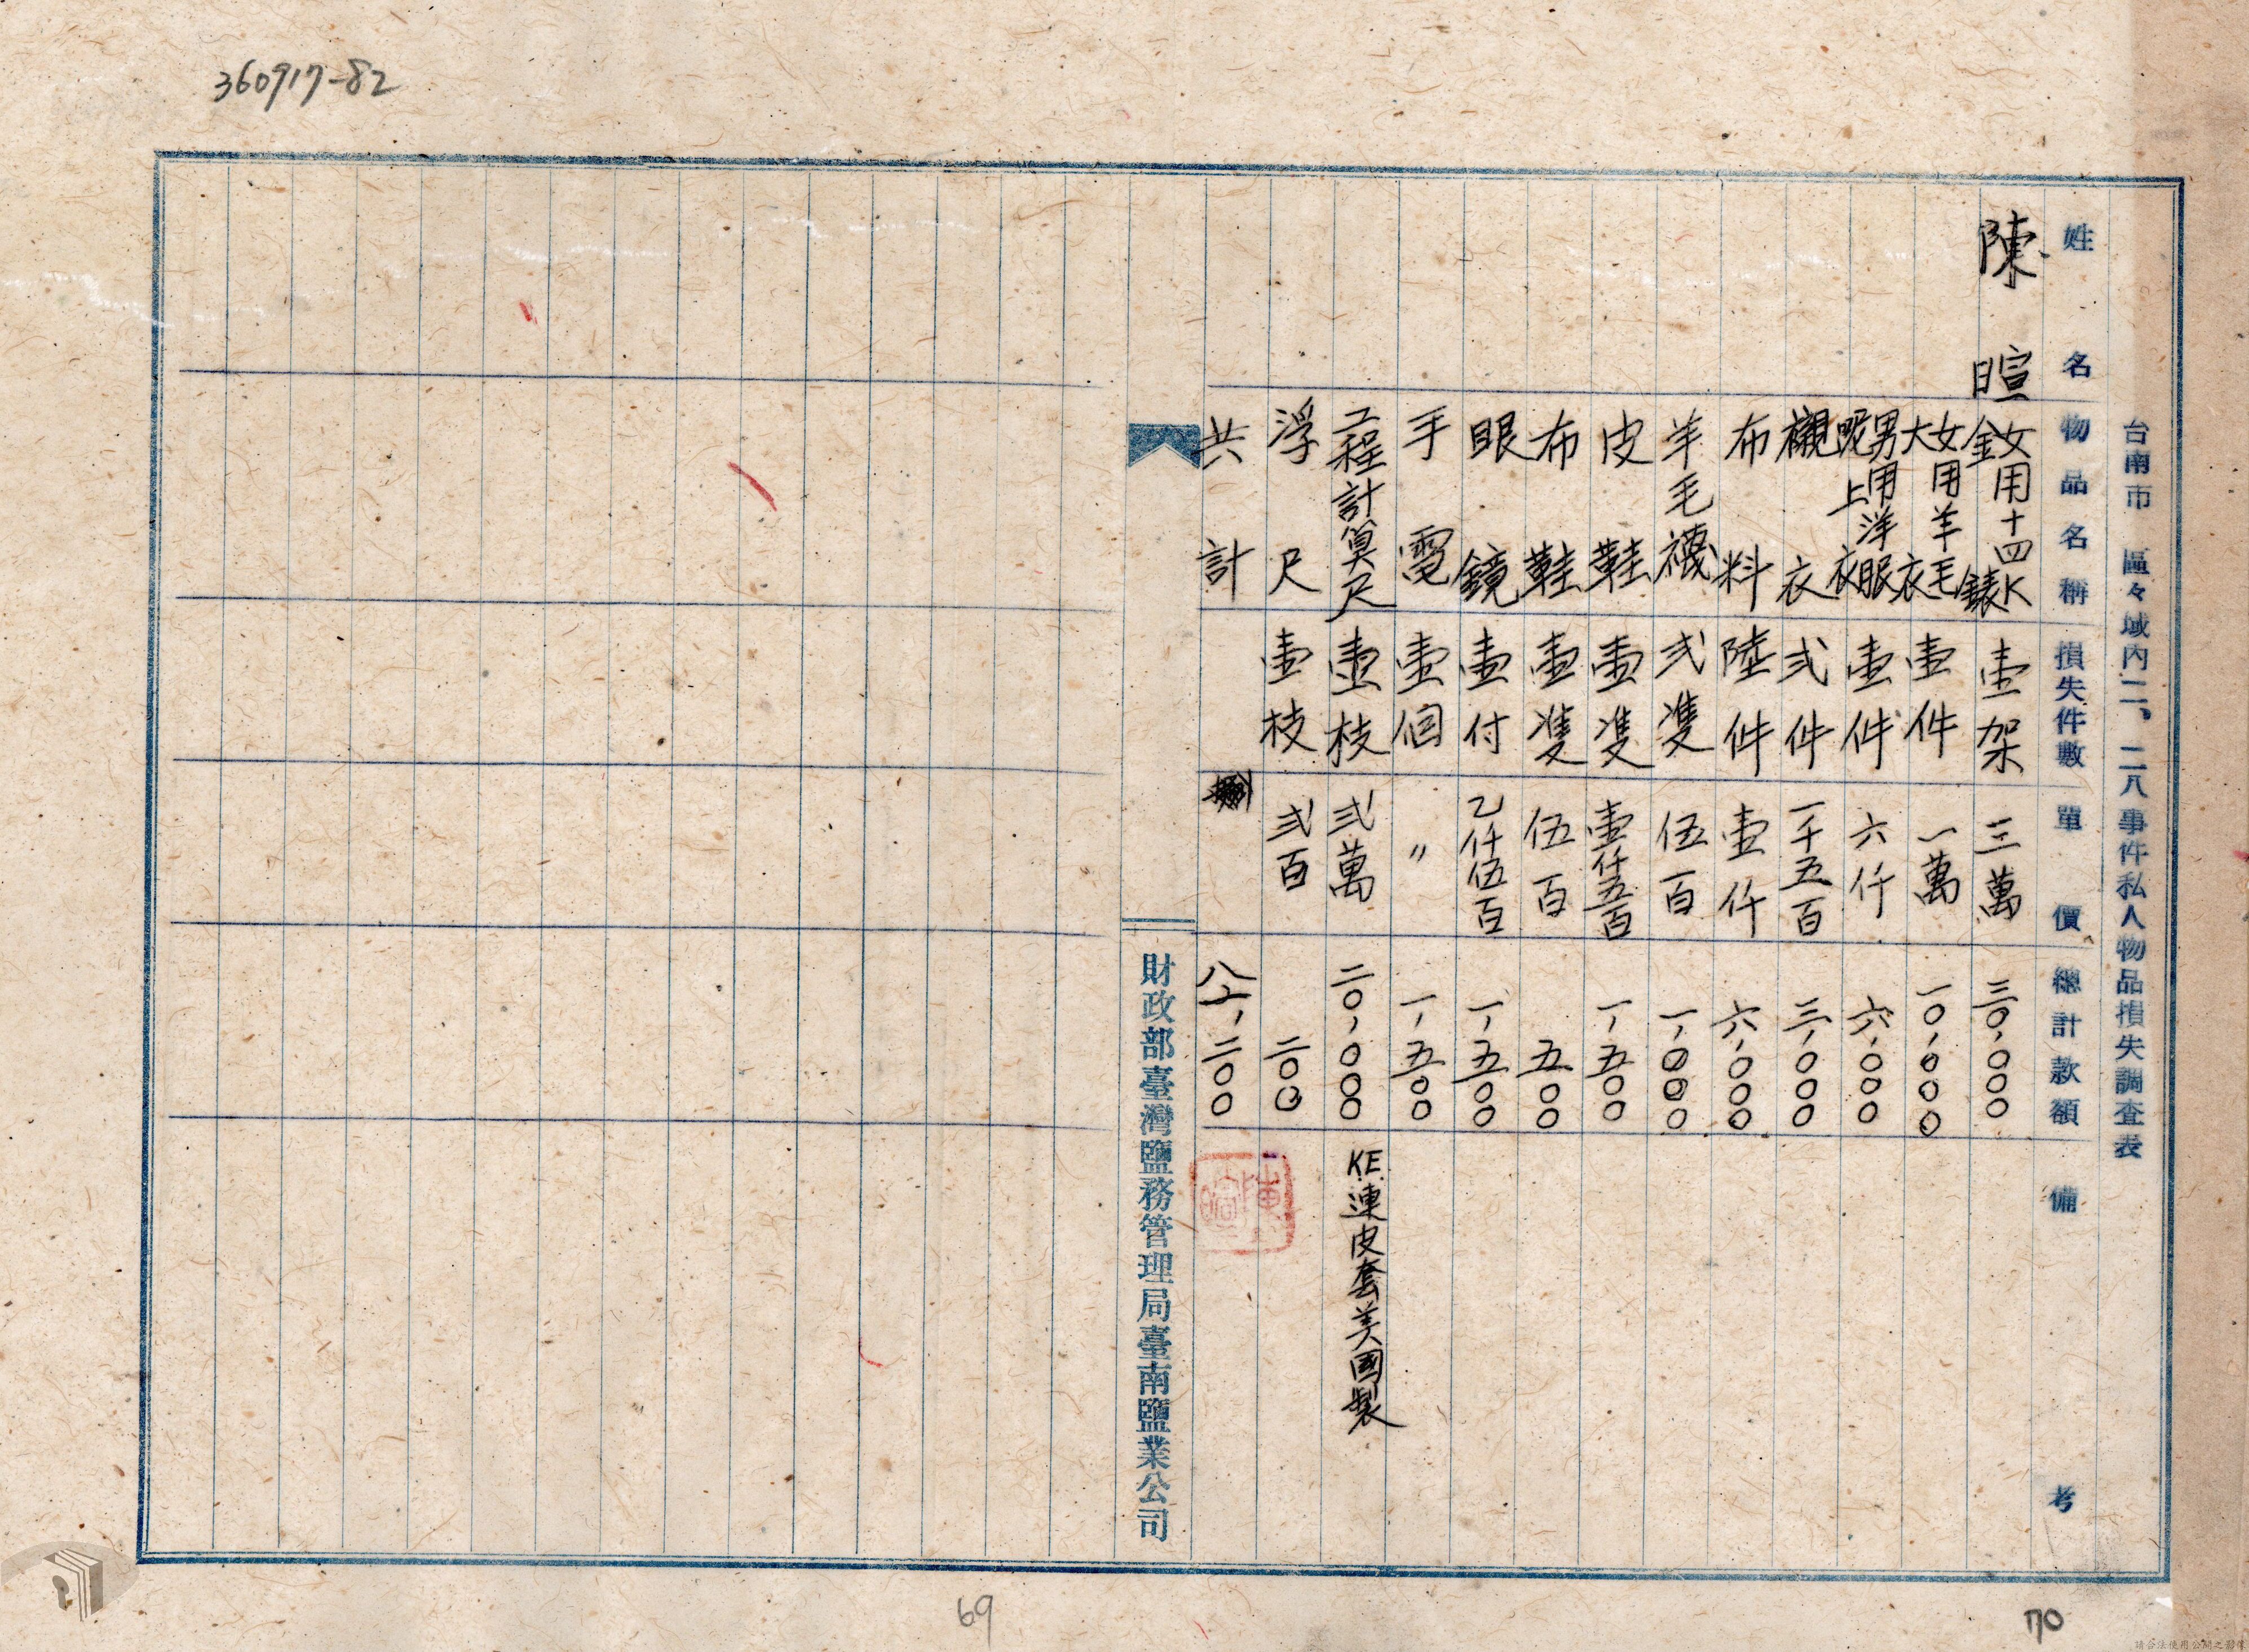 360917-82
台南市 區々域內二、二八事件私人物品損失調查表
姓名 物品名稱 損失件數 單價 總計款額 備考
陳暄 女用十四K金錶 壹架 三萬 三〇,〇〇〇
女用羊毛大衣 壹件 一萬 一〇,〇〇〇
男用洋服呢上衣 壹件 六仟 六,〇〇〇
襯衣 弍件 一千五百 三,〇〇〇
布料 陸件 壹仟 六,〇〇〇
羊毛襪 弍雙 伍百 一,〇〇〇
皮鞋 壹雙 壹仟五百 一,五〇〇
布鞋 壹雙 伍百 五〇〇
眼鏡 壹付 乙仟伍百 一,五〇〇
手電 壹個 〃 一,五〇〇
工程計算尺 壹枝 弍萬 二〇,〇〇〇 KE連皮套美國製
浮尺 壹枝 弍百 二〇〇
共計 八一,二〇〇
陳暄
財政部臺灣鹽務管理局臺南鹽業公司
69
70
請合法使用公開之影像